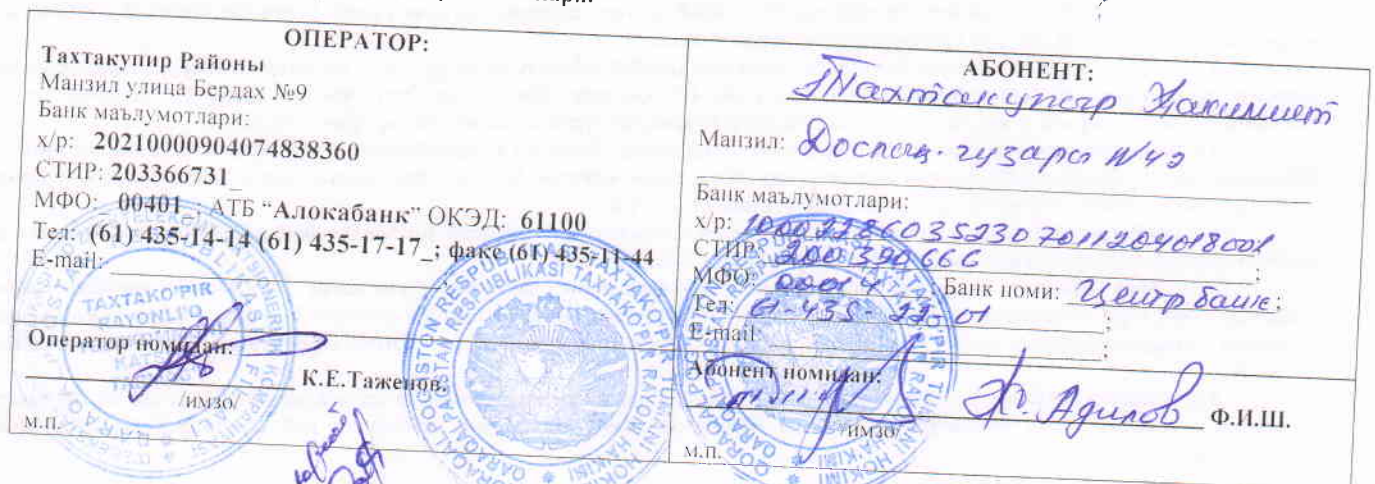 ОПЕРАТОР:
Тахтакупир Районы
Манзил улица Бердах №9
Банк маълумотлари:
х/р: 20210000904074838360
СТИР: 203366731_
МФО:_ 00401_; АТБ “Алокабанк” ОКЭД: 61100
Тел: (61) 435-14-14 (61) 435-17-17_; факс (61) 435-11-44
E-mail:
Оператор номидан:
К.Е.Таженов.
/имзо/
м.п.
АБОНЕНТ:
Тахтакупир Хакимиет
Манзил: гузари
Банк маълумотлари:
х/р: 100022860352307011204018001
СТИР: 200390666
МФО: 00014; Банк номи: Центр банк;
Тел: 61-435-22-01
E-mail:
Абонент номидан:
Адилов Ф.И.Ш.
/имзо/
м.п.
TAXTAKO'PIR
RAYONLI'Q